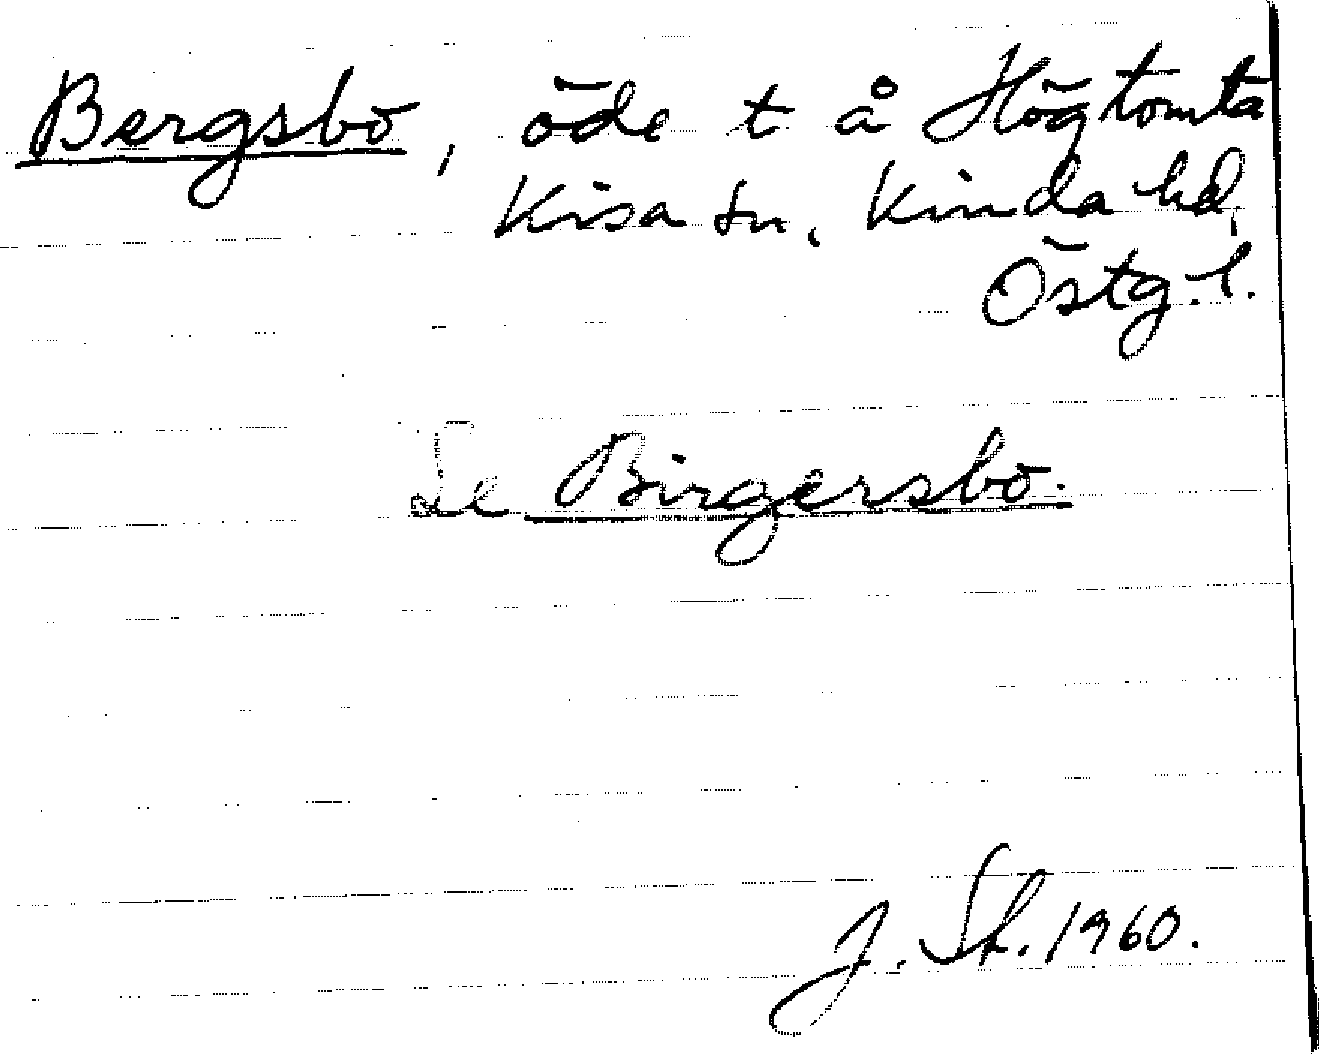 Bergsbo, öde t å Högtomta
Kisa sn, Kinda hd,
Östg. l.
Se Birgersbo.
J. Sh. 1960.